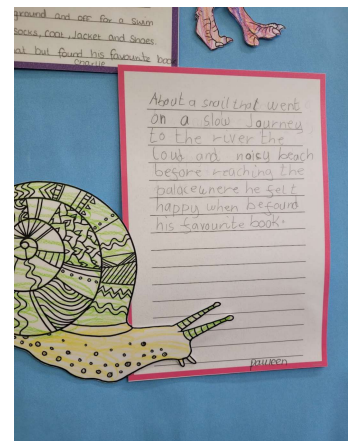 ground and off for a swim
socks, coat, Jacket and shoes
at but found his favourite book
Charlie
About a snail that went
on a slow Journey
to the river the
loud and noisy beach
before reaching the
palace where he felt
happy when he found
his favourite book.